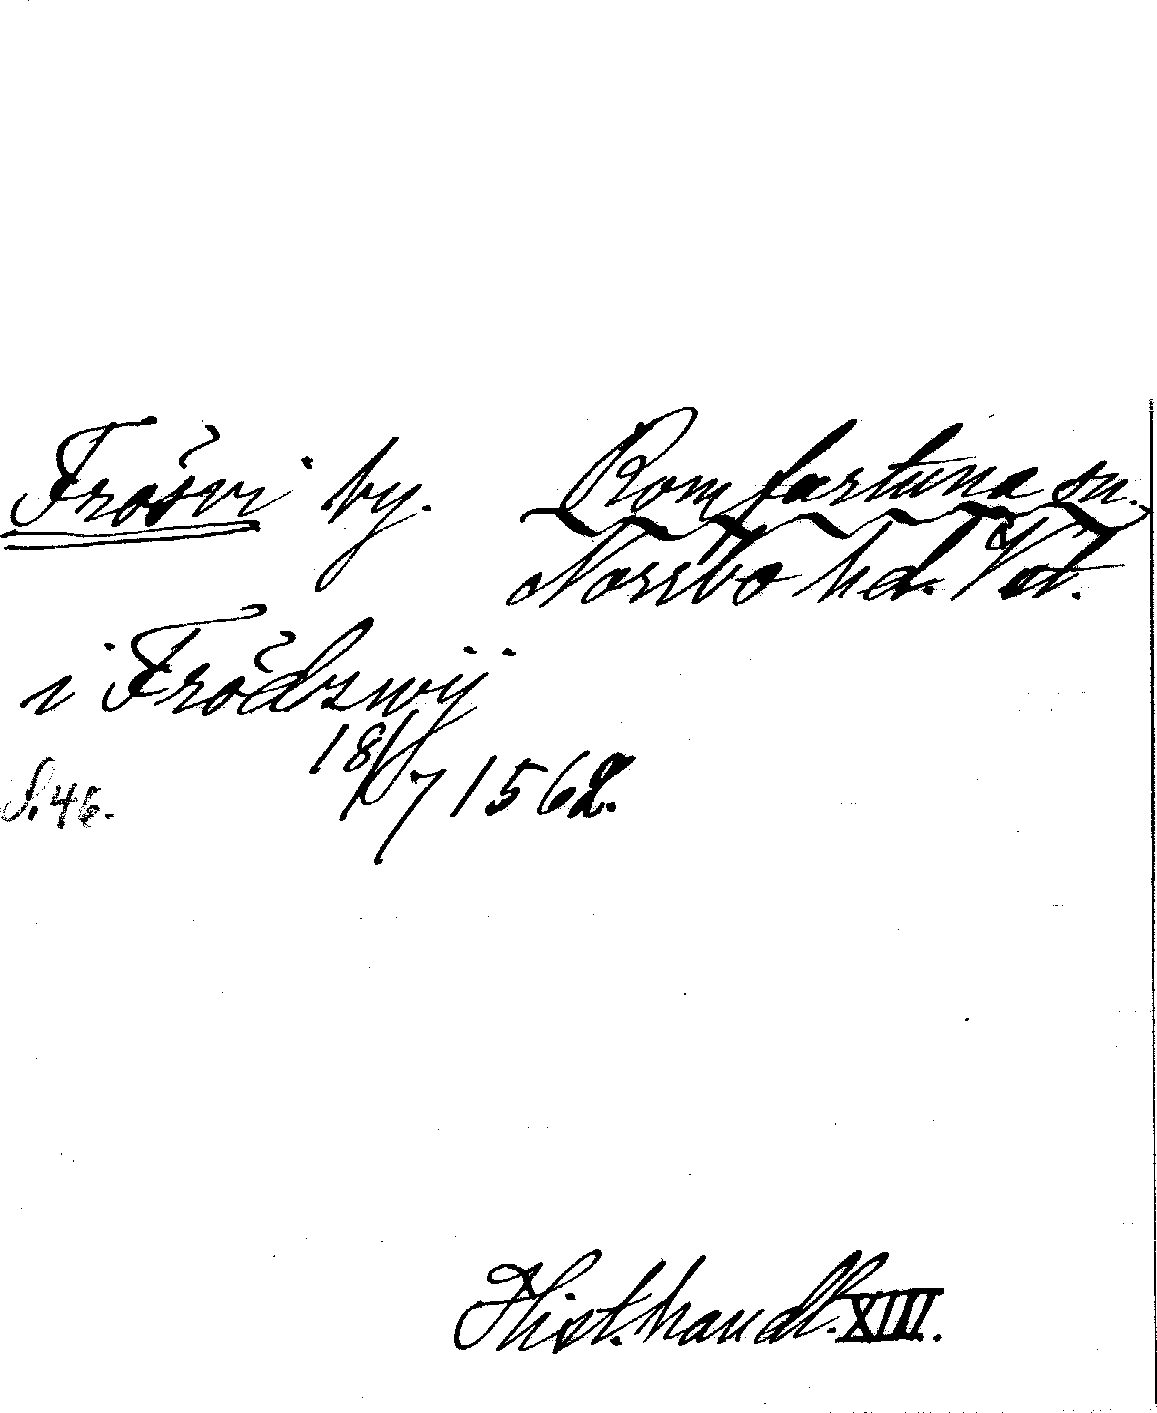 Frösvi by. Romfartuna sn.
Norrbo hd. Vstl.
i Frödzwij
18/7 1562.
S. 46.
Hist. handl. XIII.